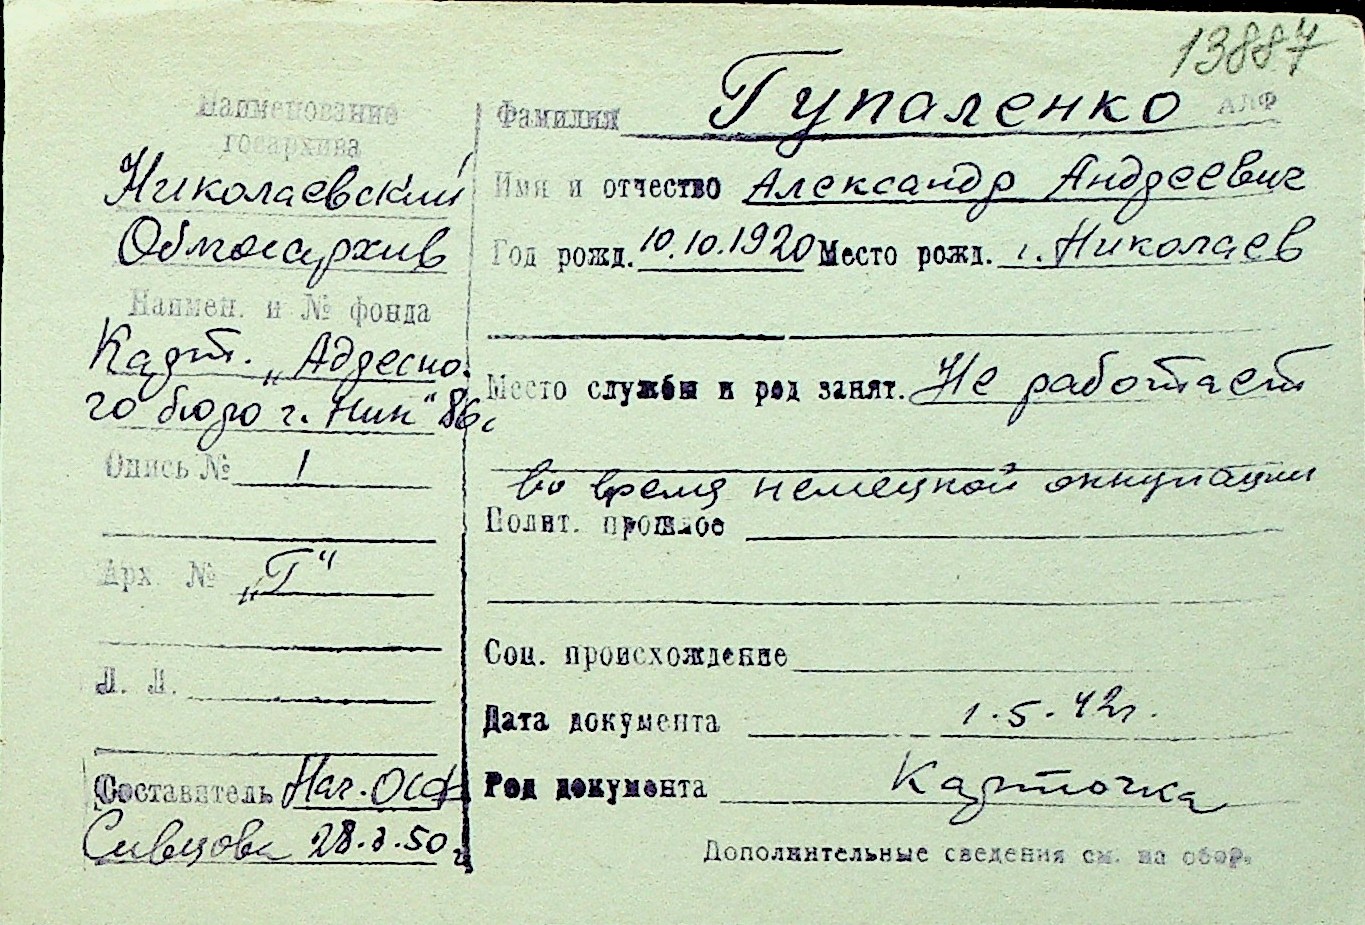 13887
Наименование
госархива
Николаевский
Облгосархив
Наимен. и № фонда
Карт. „Адресно-
го бюро г. Ник" 86с
Опись № 1
Арх. № „Г"
Л. Л.
Составитель Нач. ОСФ
Сивцова 28.3.50 г.
Фамилия Гупаленко АЛФ
Имя и отчество Александр Андреевич
Год рожд. 10.10.1920 Место рожд. г. Николаев
Место службы и род занят. Не работает
во время немецкой оккупации
Полит. прошлое
Соц. происхождение
Дата документа 1.5.42г.
Род документа Карточка
Дополнительные сведения см. на обор.